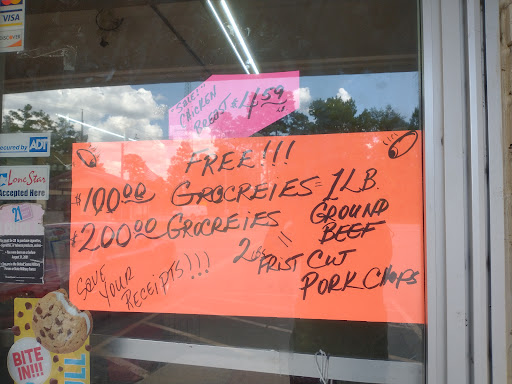 VISA
DISCOVER
Secured by ADT
Lone Star
Accepted Here
21
"SAVE!!"
CHICKEN
BREAST $4.59
FREE!!!
$100.00 GROCREIES = 1LB.
GROUND
BEEF
$200.00 GROCREIES =
2 LBS FRIST CUT
PORK CHOPS
SAVE
YOUR
RECEIPTS!!!
BITE
IN!!!